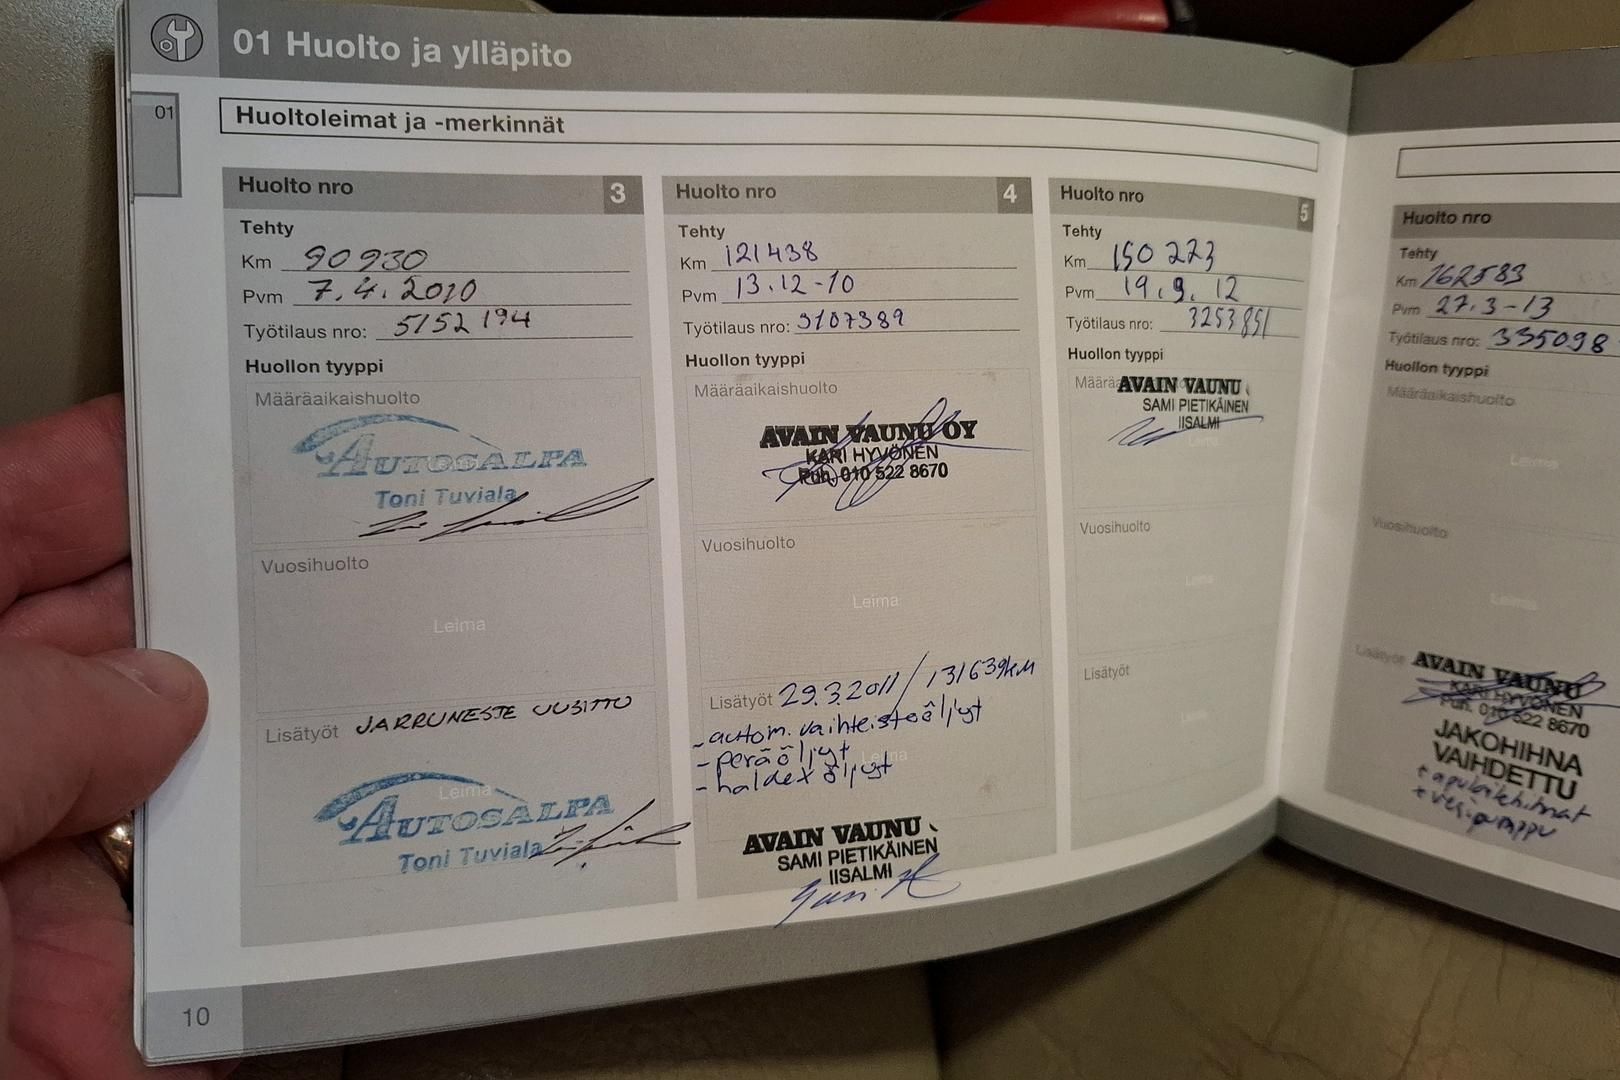 01 Huolto ja ylläpito
01
Huoltoleimat ja -merkinnät
Huolto nro 3
Tehty
Km 90930
Pvm 7.4.2010
Työtilaus nro: 5152194
Huollon tyyppi
Määräaikaishuolto
AUTOSALPA
Leima
Toni Tuviala
Vuosihuolto
Leima
Lisätyöt JARRUNESTE UUSITTU
Leima
AUTOSALPA
Toni Tuviala
Huolto nro 4
Tehty
Km 121438
Pvm 13.12-10
Työtilaus nro: 3107389
Huollon tyyppi
Määräaikaishuolto
AVAIN VAUNU OY
KARI HYVÖNEN
Puh. 010 522 8670
Vuosihuolto
Leima
Lisätyöt 29.3.2011 / 131639km
- autom. vaihteistoöljyt
- peräöljyt
- haldex öljyt
Leima
AVAIN VAUNU
SAMI PIETIKÄINEN
IISALMI
Huolto nro 5
Tehty
Km 150 223
Pvm 19.9.12
Työtilaus nro: 3253851
Huollon tyyppi
AVAIN VAUNU
SAMI PIETIKÄINEN
IISALMI
Leima
Vuosihuolto
Leima
Lisätyöt
Leima
10
Huolto nro
Tehty
Km 162583
Pvm 27.3-13
Työtilaus nro: 335098
Huollon tyyppi
Määräaikaishuolto
Leima
Vuosihuolto
Leima
Lisätyöt
AVAIN VAUNU
KARI HYVÖNEN
Puh. 010 522 8670
JAKOHIHNA
VAIHDETTU
+ apulaitehihnat
+ vesipumppu